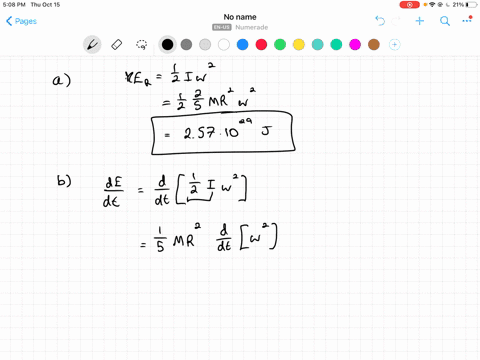 5:08 PM Thu Oct 15
21%
Pages
No name
EN-US Numerade
a) KE_R = 1/2 I w^2
= 1/2 2/5 MR^2 w^2
= 2.57 · 10^29 J
b) dE/dt = d/dt [ 1/2 I w^2 ]
= 1/5 MR^2 d/dt [ w^2 ]